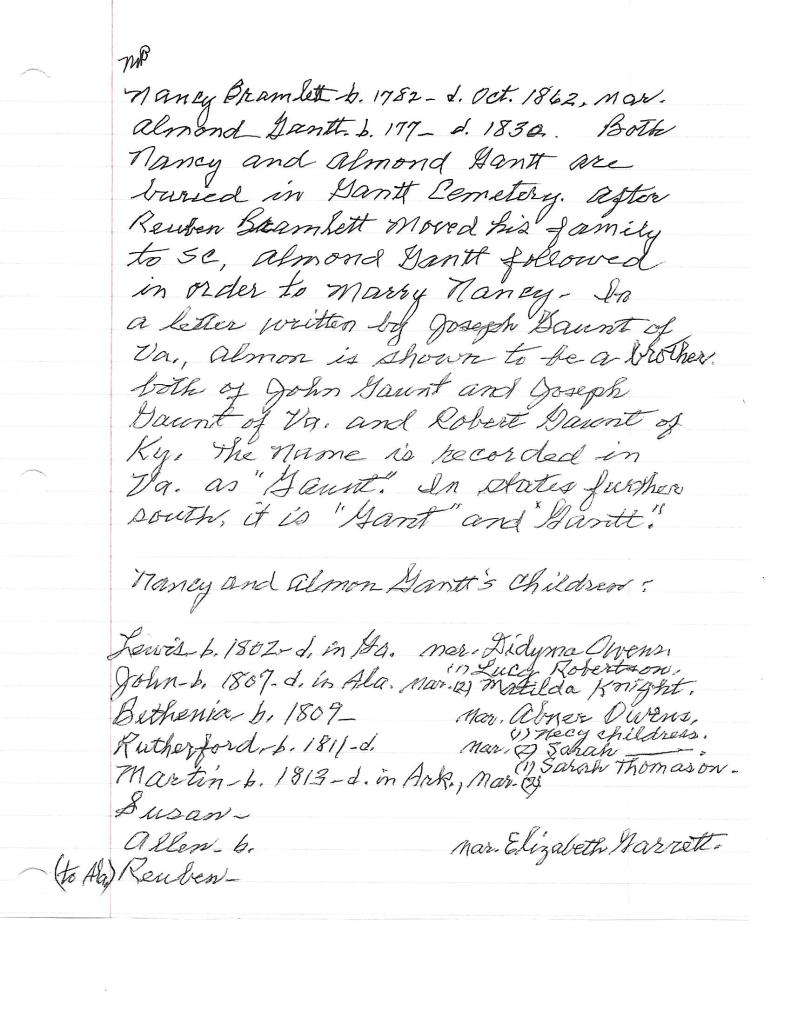 Nancy Bramlett b. 1782 - d. Oct. 1862, mar.
Almond Gantt. b. 177_ d. 183_. Both
Nancy and Almond Gantt are
buried in Gantt Cemetery. After
Reuben Bramlett moved his family
to SC, Almond Gantt followed
in order to marry Nancy - In
a letter written by Joseph Gaunt of
Va., Almon is shown to be a brother
both of John Gaunt and Joseph
Gaunt of Va. and Robert Gaunt of
Ky. The name is recorded in
Va. as "Gaunt." In states further
south, it is "Gant" and "Gantt."
Nancy and Almon Gantt's Children:
Lewis - b. 1802 - d. in Ga. mar. Didyma Owens.
(1) Lucy Robertson.
John - b. 1807 - d. in Ala. mar. (2) Matilda Knight.
Bethenia - b. 1809 - mar. Abner Owens.
(1) Necy Childress.
Rutherford - b. 1811 - d. mar. (2) Sarah ____.
(1) Sarah Thomason.
Martin - b. 1813 - d. in Ark., mar. (2)
Susan -
Allen - b. mar. Elizabeth Garrett.
(to Ala.) Reuben -